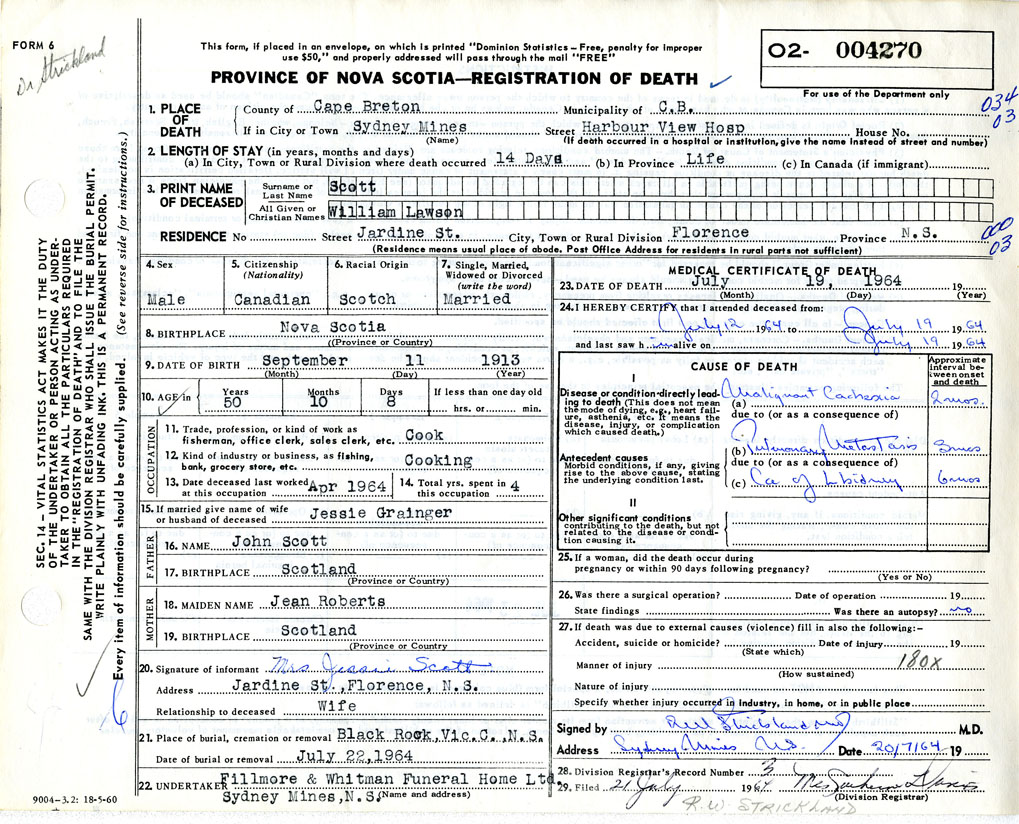 FORM 6
Dr Strickland
This form, if placed in an envelope, on which is printed "Dominion Statistics – Free, penalty for improper
use $50," and properly addressed will pass through the mail "FREE"
PROVINCE OF NOVA SCOTIA—REGISTRATION OF DEATH
O2- 004270
For use of the Department only
034
03
1. PLACE OF DEATH
County of Cape Breton Municipality of C.B.
If in City or Town Sydney Mines Street Harbour View Hosp House No.
(Name) (If death occurred in a hospital or institution, give the name instead of street and number)
2. LENGTH OF STAY (in years, months and days)
(a) In City, Town or Rural Division where death occurred 14 Days (b) In Province Life (c) In Canada (if immigrant)
3. PRINT NAME OF DECEASED
Surname or Last Name Scott
All Given or Christian Names William Lawson
RESIDENCE No Street Jardine St. City, Town or Rural Division Florence Province N.S.
(Residence means usual place of abode. Post Office Address for residents in rural parts not sufficient)
000
03
4. Sex
Male
5. Citizenship
(Nationality)
Canadian
6. Racial Origin
Scotch
7. Single, Married,
Widowed or Divorced
(write the word)
Married
8. BIRTHPLACE Nova Scotia
((Province or Country)
9. DATE OF BIRTH September 11 1913
(Month) (Day) (Year)
10. AGE in Years 50 Months 10 Days 8 If less than one day old
hrs. or min.
OCCUPATION
11. Trade, profession, or kind of work as
fisherman, office clerk, sales clerk, etc. Cook
12. Kind of industry or business, as fishing,
bank, grocery store, etc. Cooking
13. Date deceased last worked
at this occupation Apr 1964
14. Total yrs. spent in
this occupation 4
15. If married give name of wife
or husband of deceased Jessie Grainger
FATHER
16. NAME John Scott
17. BIRTHPLACE Scotland
(Province or Country)
MOTHER
18. MAIDEN NAME Jean Roberts
19. BIRTHPLACE Scotland
(Province or Country
20. Signature of informant Mrs Jessie Scott
Address Jardine St., Florence, N.S.
Relationship to deceased Wife
21. Place of burial, cremation or removal Black Rock, Vic.C., N.S.
Date of burial or removal July 22, 1964
22. UNDERTAKER Fillmore & Whitman Funeral Home Ltd.
Sydney Mines, N.S. (Name and address)
MEDICAL CERTIFICATE OF DEATH
23. DATE OF DEATH July 19, 1964 19
(Month) (Day) (Year)
24. I HEREBY CERTIFY that I attended deceased from:
July 12 1964 to July 19 1964
and last saw him alive on July 19 1964
CAUSE OF DEATH
Approximate
interval be-
tween onset
and death
I
Disease or condition directly lead-
ing to death (This does not mean
the mode of dying, e.g., heart fail-
ure, asthenia, etc. It means the
disease, injury, or complication
which caused death.)
(a) Malignant Cachexia 2 mos.
due to (or as a consequence of)
(b) Pulmonary Metastasis 3 mos
Antecedent causes
Morbid conditions, if any, giving
rise to the above cause, stating
the underlying condition last.
due to (or as a consequence of)
(c) Ca of L kidney 6 mos
II
Other significant conditions
contributing to the death, but not
related to the disease or condi-
tion causing it.
25. If a woman, did the death occur during
pregnancy or within 90 days following pregnancy?
(Yes or No)
26. Was there a surgical operation? Date of operation 19
State findings Was there an autopsy? no
27. If death was due to external causes (violence) fill in also the following:–
Accident, suicide or homicide? Date of injury 19
(State which)
Manner of injury 180X
(How sustained)
Nature of injury
Specify whether injury occurred in Industry, in home, or in public place
Signed by R W Strickland MD M.D.
Address Sydney Mines N.S. Date 20/7/64 19
28. Division Registrar's Record Number 3
29. Filed 21 July 1964 Davis
(Division Registrar)
R.W. STRICKLAND
SEC. 14 – VITAL STATISTICS ACT MAKES IT THE DUTY
OF THE UNDERTAKER OR PERSON ACTING AS UNDER-
TAKER TO OBTAIN ALL THE PARTICULARS REQUIRED
IN THE "REGISTRATION OF DEATH" AND TO FILE THE
SAME WITH THE DIVISION REGISTRAR WHO SHALL ISSUE THE BURIAL PERMIT.
WRITE PLAINLY WITH UNFADING INK. THIS IS A PERMANENT RECORD.
Every item of information should be carefully supplied. (See reverse side for instructions.)
9004–3.2: 18-5-60